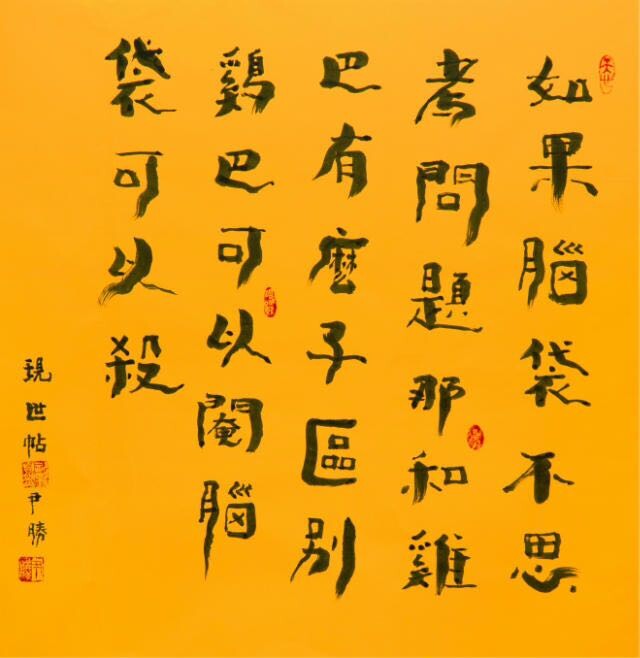 如果腦袋不思
考問題那和雞
巴有麼子區别
鷄巴可以閹腦
袋可以殺
現世帖尹勝